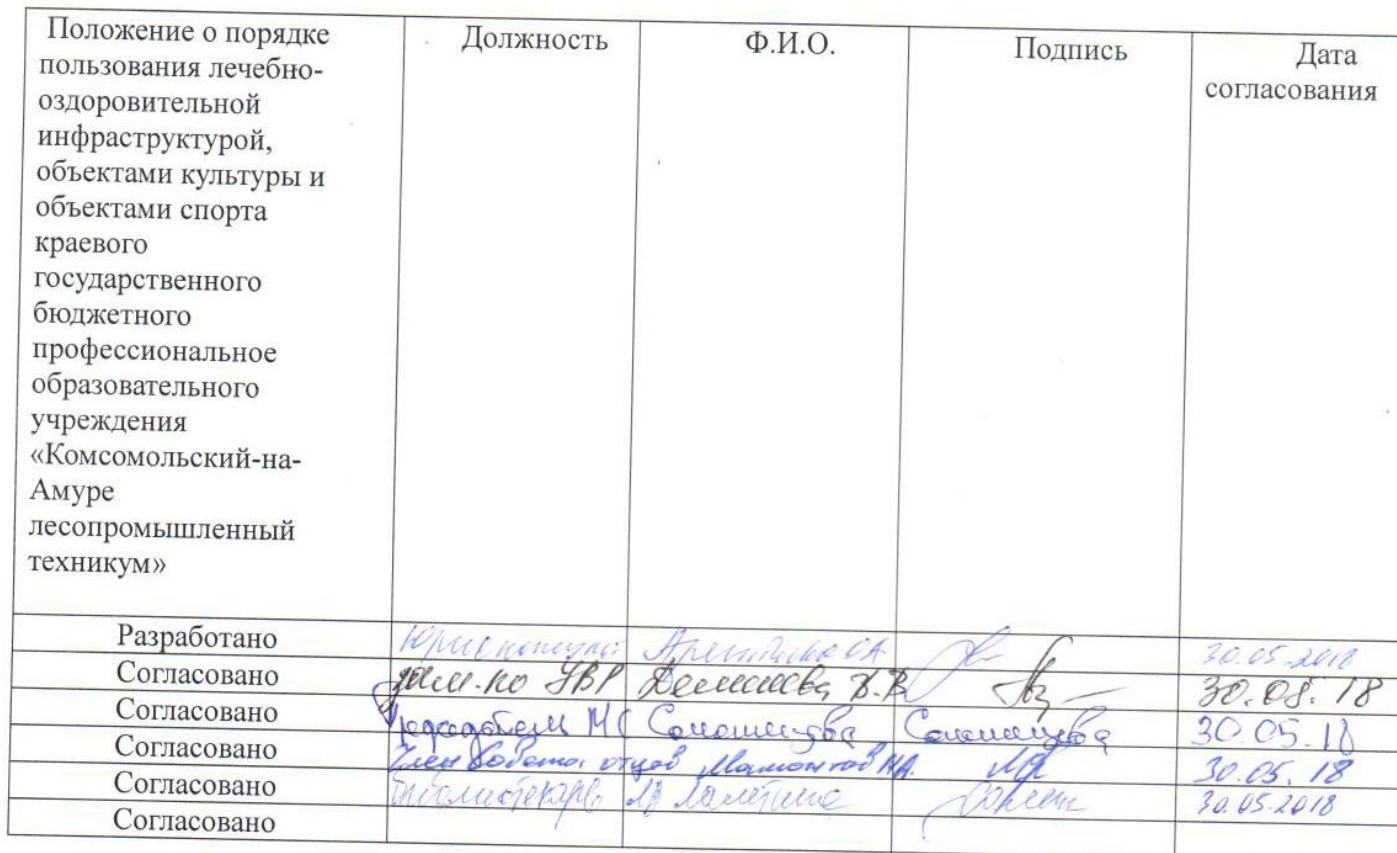 Положение о порядке
пользования лечебно-
оздоровительной
инфраструктурой,
объектами культуры и
объектами спорта
краевого
государственного
бюджетного
профессиональное
образовательного
учреждения
«Комсомольский-на-
Амуре
лесопромышленный
техникум»
Должность
Ф.И.О.
Подпись
Дата
согласования
Разработано Юрисконсульт 30.05.2018
Согласовано зам. по УВР 30.05.18
Согласовано 30.05.18
Согласовано Член Совета отцов Мамонтов 30.05.18
Согласовано 30.05.2018
Согласовано